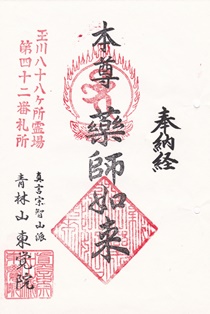 奉納経
本尊 薬師如来
玉川八十八ヶ所霊場
第四十二番札所
真言宗智山派
青林山 東覚院